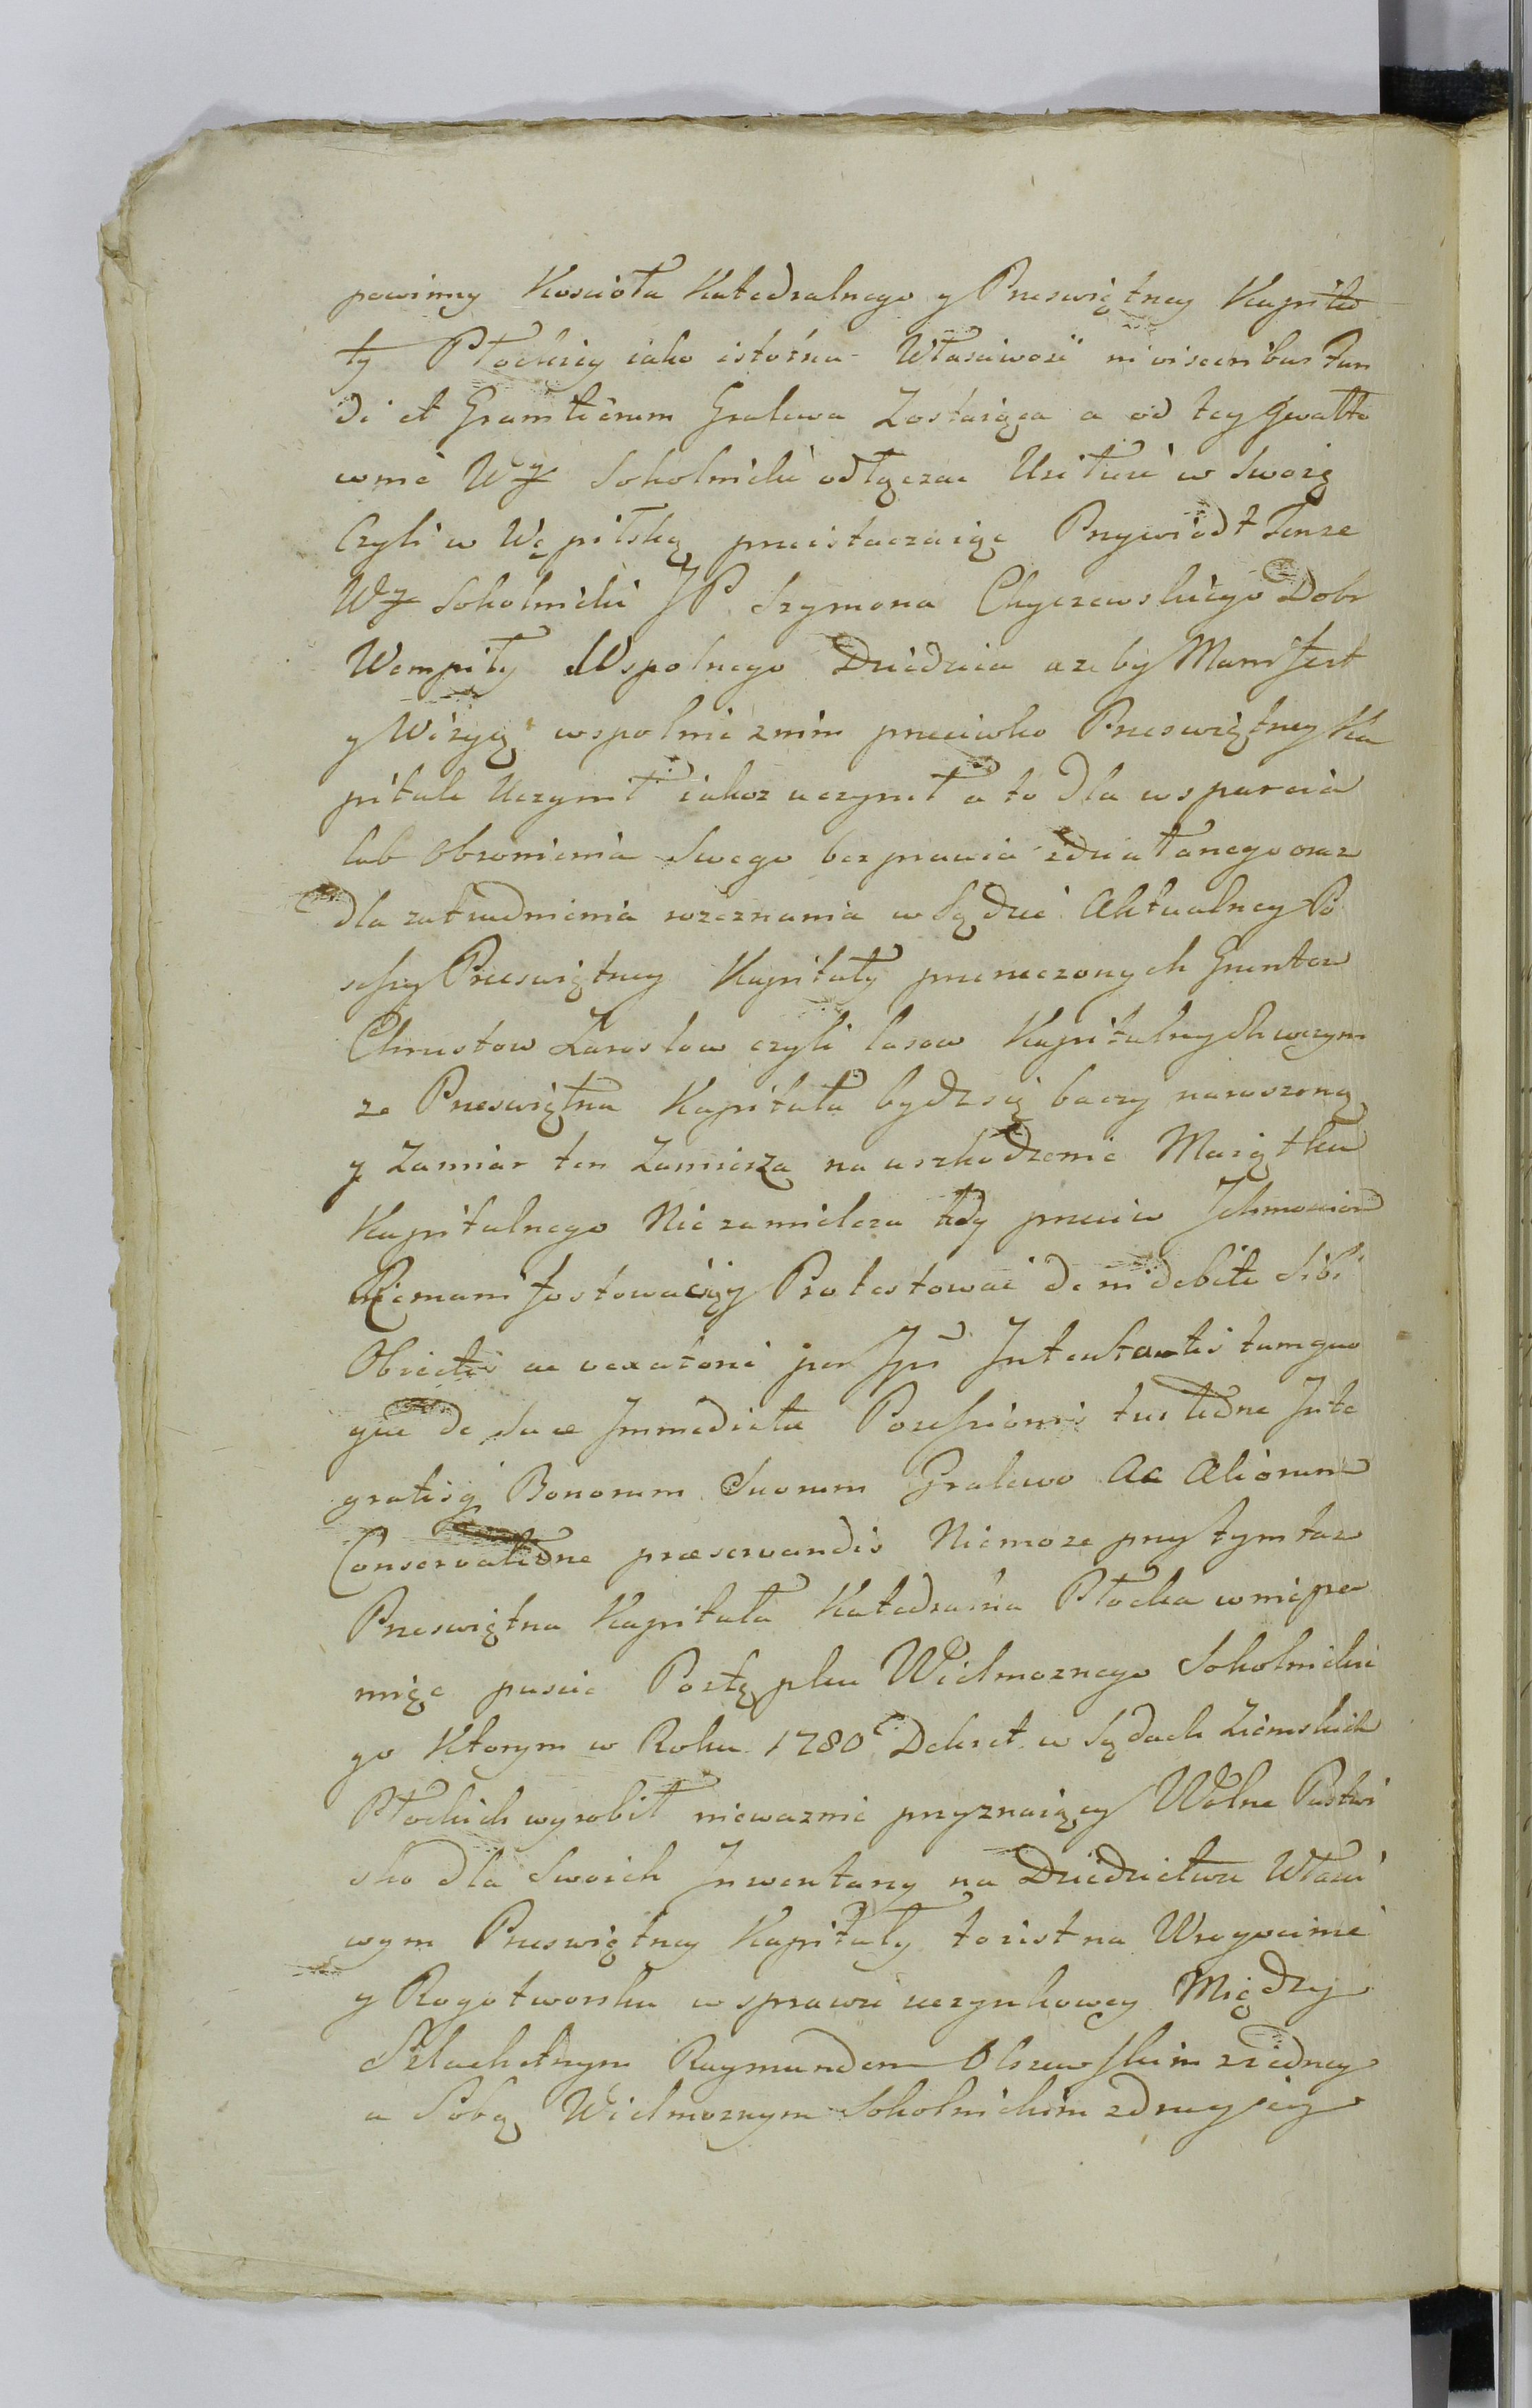 powinny Koscioła Katedralnego y Przeswiętney Kapitu
ły Płockiey iako istotna Własciwość in visceribus fun
di et Granitierum Gralewa Zostaiąca a od tey Gwałto
wnie WJ Sokolnicki odłączac Usiłuie w Swoią
Czyli w Wępilską przeistaczaiąc Przywiodł Tenze
WJ Sokolnicki JP. Szymona Chyczewskiego Dobr
Wempiły Wspolnego Dziedzica azeby Manifest
y Wizyą wspolnie znim przeciwko Przeswiętney Ka
pitule Uczynił iakoz uczynił a to dla wsparcia
lub Obronienia Swego bezprawia zdziałanego oraz
dla zatrudnienia rozeznania w Sądzie Aktualney Po
sessy Przeswiętney Kapituły pomieczonych Gruntow
Chrustow Zaroslow czyli lasow Kapitulnych wczym
ze Przeswiętna Kapituła bydz się baczy naruszoną
y Zamiar ten Zamierza na uszkodzenie Maiątku
Kapitulnego Niezamilcza tedy przeciw Ichmosciom
Remanifestowaćsię y Protestować de indebite Sibi
Obiectis ac vexatione per Jpē Intentatis tumquo
que de suae Immediatae Possessionis tuitione Inte
gratisq Bonorum Suorum Gralewo Ac Aliorum
Conservatione praeservandis Niemoze przytym taz
Przeswiętna Kapituła Katedralna Płocka wniepa
mięc puscic Postępku Wielmoznego Sokolnickie
go Ktorym w Roku 1780 Dekret w Sądach Ziemskich
Płockich wyrobił niewaznie przyznaiący Wolne Pastwi
sko dla Swoich Inwentarzy na Dziedzictwie Własci
wym Przeswiętney Kapituły toiest na Wrogocinie
y Rogotworsku w sprawie uczynkowey Między
Szlachetnym Raymundem Olszewskim ziedney
a Sobą Wielmoznym Sokolnickim zdrugiey